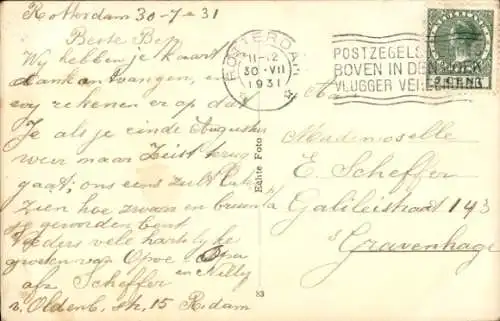 Rotterdam 30-7-31
Beste Bep
Wij hebben je kaart
dank ontvangen, en
wij rekenen er op dat
Je als je einde Augustus
weer naar Zeist terug
gaat, ons eens zult laten
zien hoe zwaar en bruin
je geworden bent
Verders vele hartelijke
groeten van Opoe Opa
en Nelly
afz Scheffer
v. Oldenb. str. 15 R.dam
ROTTERDAM
11-12
30 VII
1931
POSTZEGELS
BOVEN IN DEN HOEK
VLUGGER VER
5 CENT
Aan
Mademoselle
E. Scheffer
Galileistraat 143
s Gravenhage
Echte Foto
83